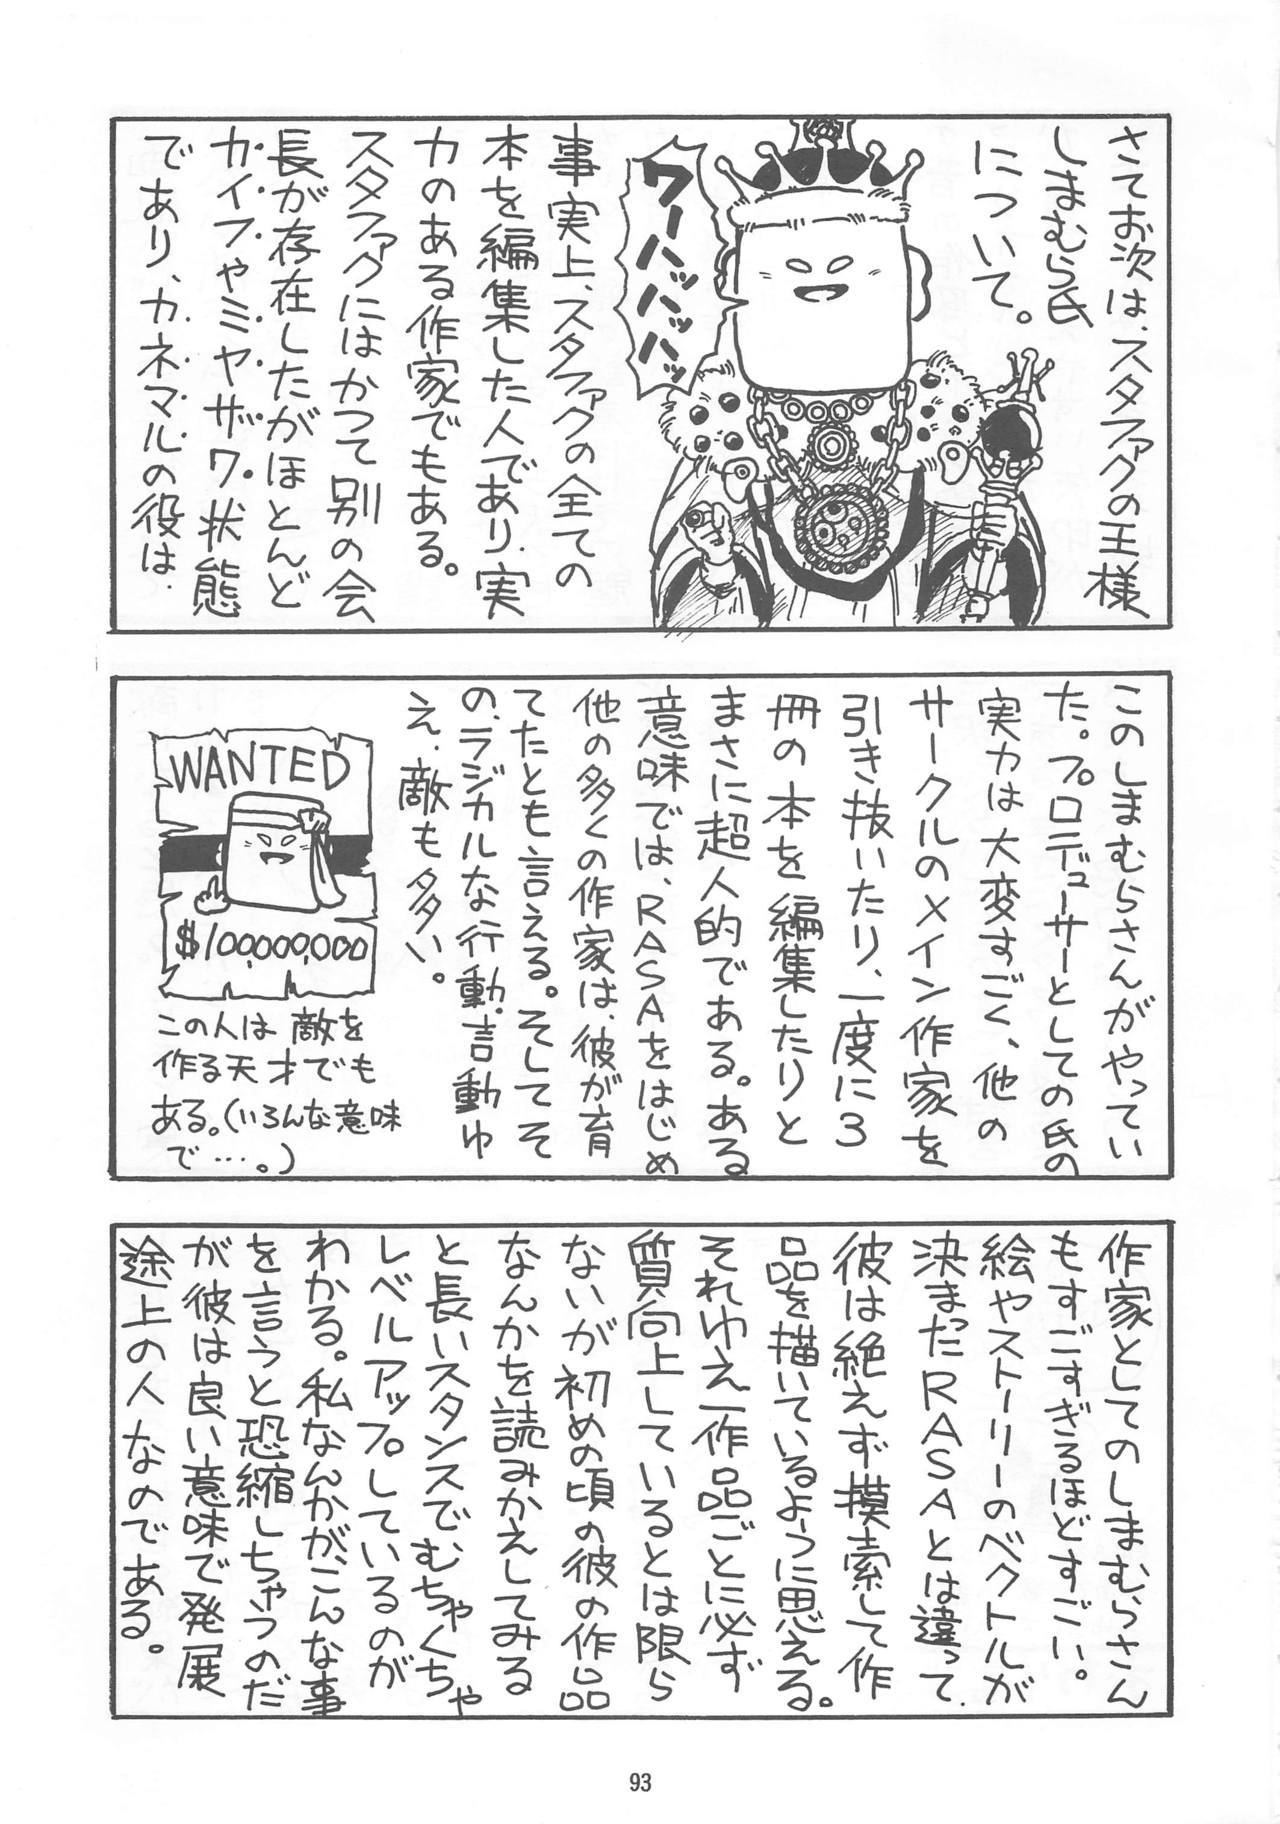 さてお次は、スタファグの王様
しまむら氏
について。
ワーハッハッハッ
事実上、スタファグの全ての
本を編集した人であり、実
力のある作家でもある。
スタファグにはかつて別の会
長が存在したがほとんど
カイフやミヤザワ状態
であり、カネマルの役は、
このしまむらさんがやってい
た。プロデューサーとしての氏の
実力は大変すごく、他の
サークルのメイン作家を
引き抜いたり、一度に3
冊の本を編集したりと
まさに超人的である。ある
意味では、RASAをはじめ
他の多くの作家は、彼が育
てたとも言える。そしてそ
の、ラジカルな行動、言動ゆ
え、敵も多い。
WANTED
$100,000,000
この人は敵を
作る天才でも
ある。(いろんな意味
で…。)
作家としてのしまむらさん
もすごすぎるほどすごい。
絵やストーリーのベクトルが
決まったRASAとは違って、
彼は絶えず模索して作
品を描いているように思える。
それゆえ一作品ごとに必ず
質向上しているとは限ら
ないが初めの頃の彼の作品
なんかを読みかえしてみる
と長いスタンスでむちゃくちゃ
レベルアップしているのが
わかる。私なんかがこんな事
を言うと恐縮しちゃうのだ
が彼は良い意味で発展
途上の人なのである。
93